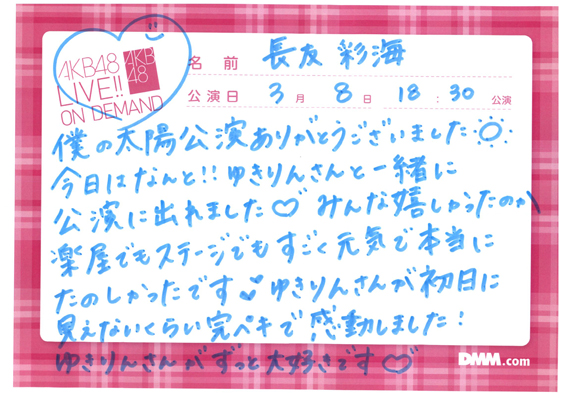 AKB48
LIVE!!
ON DEMAND
AKB
48
名前 長友 彩海
公演日 3月 8日 18:30 公演
僕の太陽公演ありがとうございました
今日はなんと!!ゆきりんさんと一緒に
公演に出れました♡ みんな嬉しかったのか
楽屋でもステージでもすごく元気で本当に
たのしかったです ゆきりんさんが初日に
見えないくらい完ペキで感動しました!
ゆきりんさんがずっと大好きです♡
DMM.com